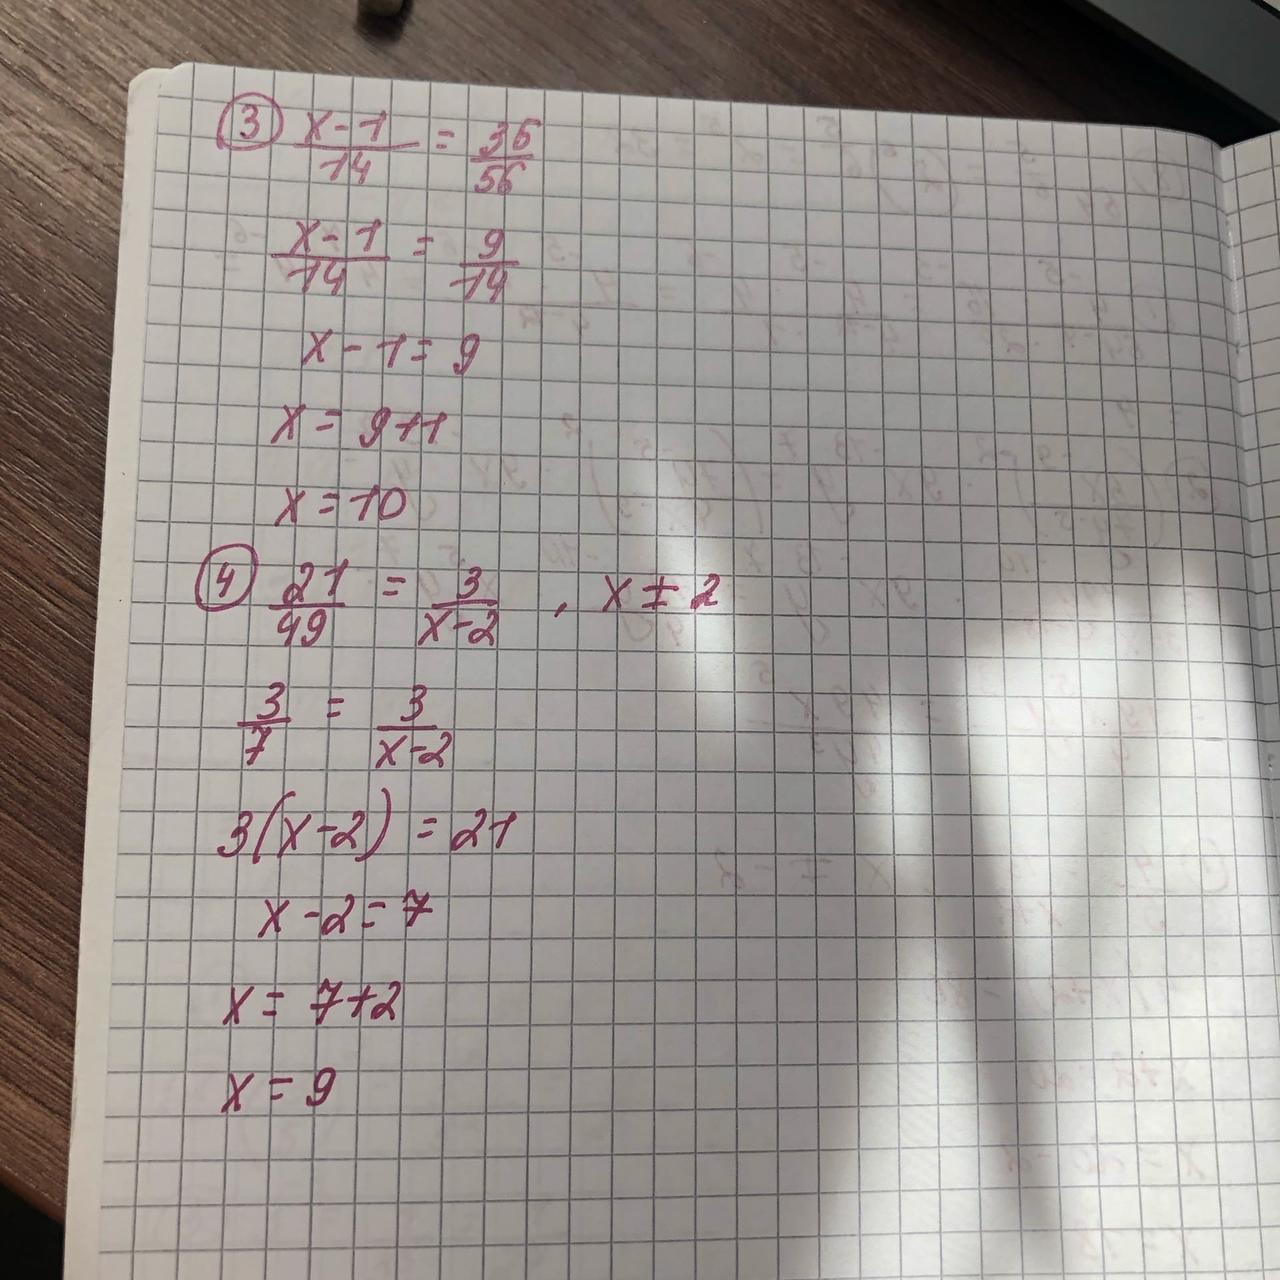 ③ x-1/14 = 36/56
x-1/14 = 9/14
x-1=9
x=9+1
x=10
④ 21/49 = 3/x-2 , x≠2
3/7 = 3/x-2
3(x-2)=21
x-2=7
x=7+2
x=9